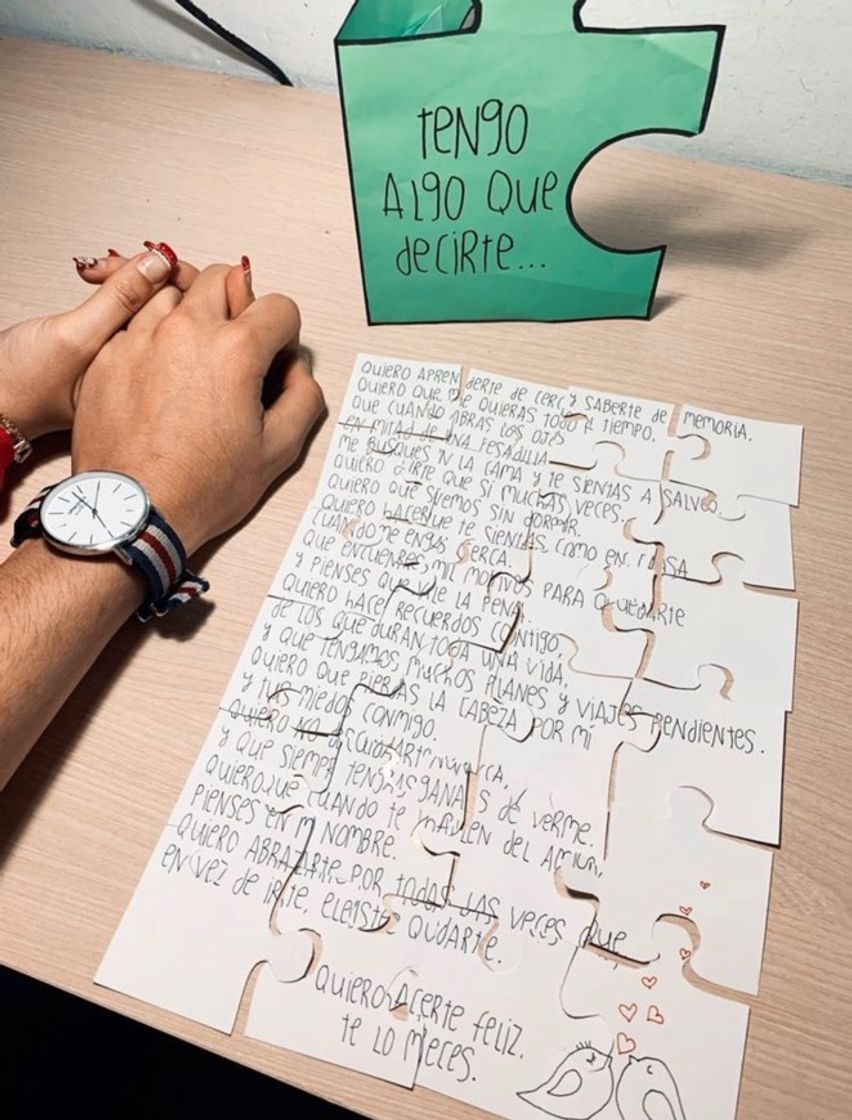 TENGO
ALGO QUE
DECIRTE...
QUIERO APRENDERTE DE CERCA Y SABERTE DE MEMORIA.
QUIERO QUE ME QUIERAS TODO EL TIEMPO.
QUE CUANDO ABRAS LOS OJOS
EN MITAD DE UNA PESADILLA
ME BUSQUES EN LA CAMA Y TE SIENTAS A SALVO.
QUIERO DIRTE QUE SÍ MUCHAS VECES.
QUIERO QUE SUEMOS SIN DORMIR.
QUIERO HACER QUE TE SIENTAS COMO EN CASA
CUANDO ME TENGAS CERCA.
QUE ENCUENTRES MIL MOTIVOS PARA QUEDARTE
Y PIENSES QUE VALE LA PENA.
QUIERO HACER RECUERDOS CONTIGO,
DE LOS QUE DURAN TODA UNA VIDA,
Y QUE TENGAMOS MUCHOS PLANES Y VIAJES PENDIENTES.
QUIERO QUE PIERDAS LA CABEZA POR MÍ
Y TUS MIEDOS CONMIGO.
QUIERO NO DESCUIDARTE NUNCA,
Y QUE SIEMPRE TENGAS GANAS DE VERME.
QUIERO QUE CUANDO TE HABLEN DEL AMOR,
PIENSES EN MI NOMBRE.
QUIERO ABRAZARTE POR TODAS LAS VECES QUE,
EN VEZ DE IRTE, ELEGISTE QUDARTE.
QUIERO ACERTE FELIZ.
TE LO MECES.